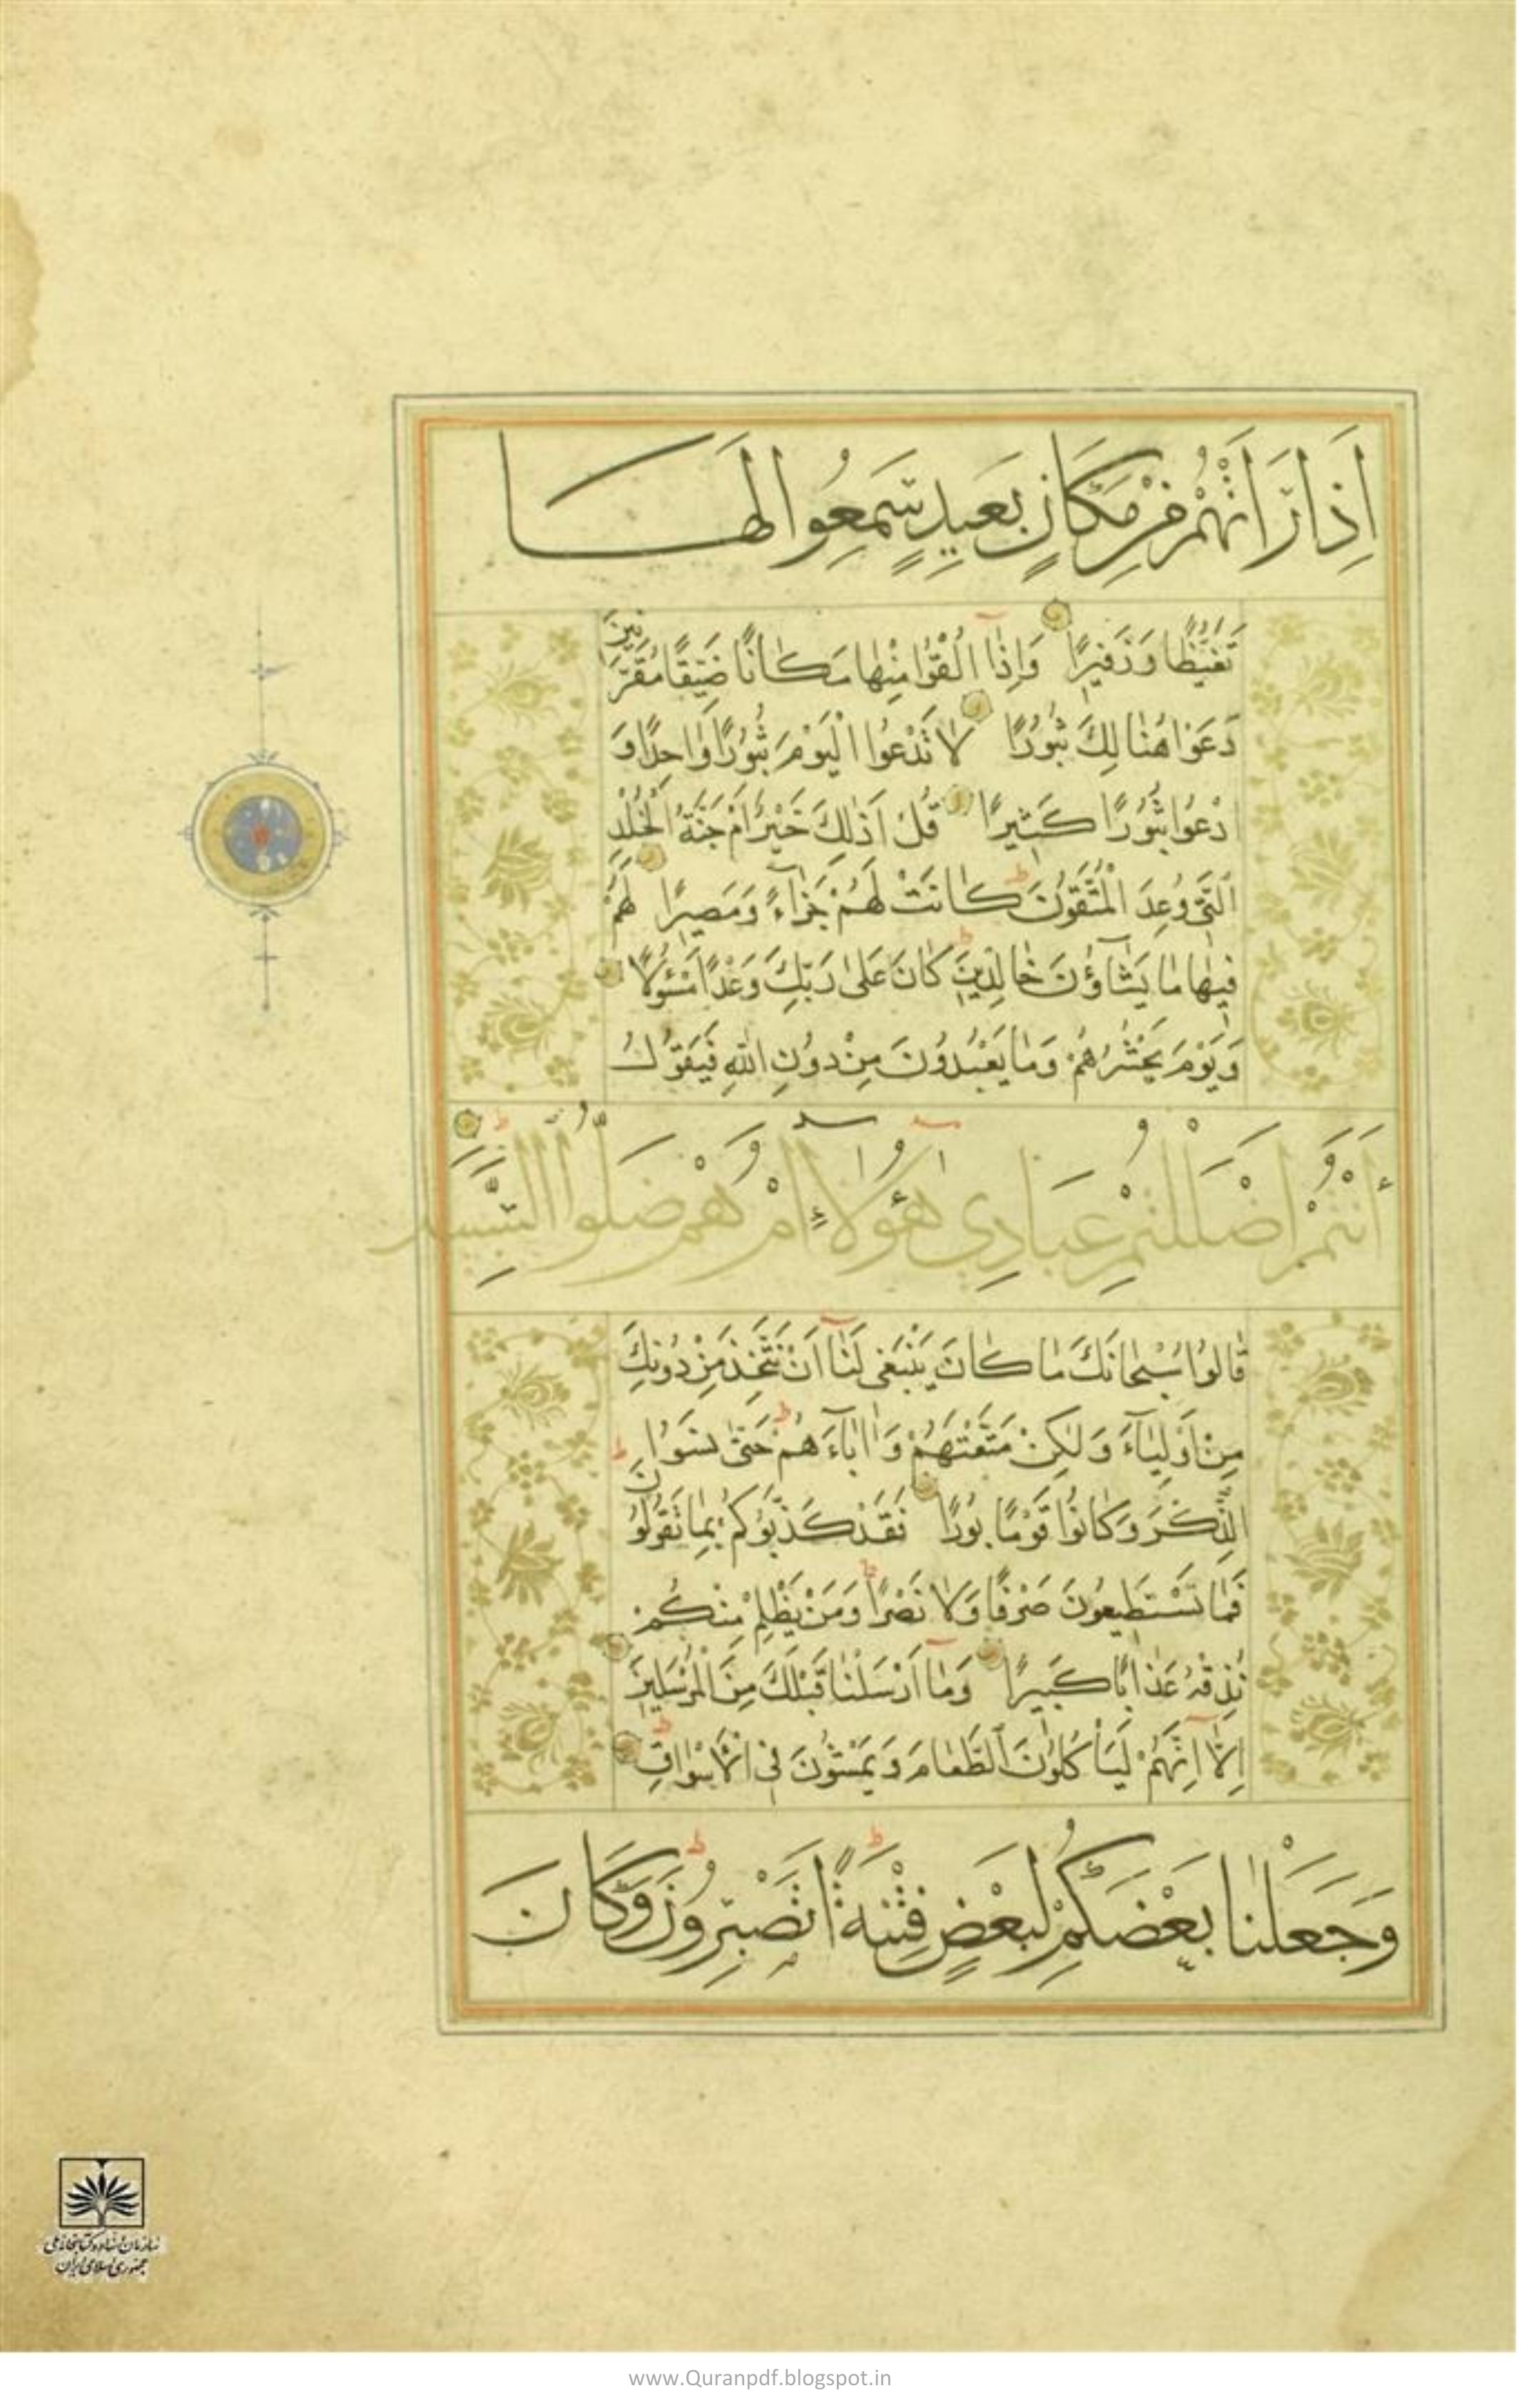 اِذَا رَاَتْهُمْ مِنْ مَكَانٍ بَعِيدٍ سَمِعُوا لَهَا
تَغَيُّظًا وَزَفِيرًا وَاِذَآ اُلْقُوا مِنْهَا مَكَانًا ضَيِّقًا مُقَرَّنِينَ
دَعَوْا هُنَالِكَ ثُبُورًا لَا تَدْعُوا الْيَوْمَ ثُبُورًا وَاحِدًا وَ
ادْعُوا ثُبُورًا كَثِيرًا قُلْ اَذٰلِكَ خَيْرٌ اَمْ جَنَّةُ الْخُلْدِ
الَّتِي وُعِدَ الْمُتَّقُونَ كَانَتْ لَهُمْ جَزَآءً وَمَصِيرًا لَهُمْ
فِيهَا مَا يَشَآؤُنَ خَالِدِينَ كَانَ عَلٰى رَبِّكَ وَعْدًا مَسْئُولًا
وَيَوْمَ يَحْشُرُهُمْ وَمَا يَعْبُدُونَ مِنْ دُونِ اللّٰهِ فَيَقُولُ
ءَاَنْتُمْ اَضْلَلْتُمْ عِبَادِي هٰٓؤُلَآءِ اَمْ هُمْ ضَلُّوا السَّبِيلَ
قَالُوا سُبْحَانَكَ مَا كَانَ يَنْبَغِي لَنَآ اَنْ نَتَّخِذَ مِنْ دُونِكَ
مِنْ اَوْلِيَآءَ وَلٰكِنْ مَتَّعْتَهُمْ وَاٰبَآءَهُمْ حَتّٰى نَسُوا
الذِّكْرَ وَكَانُوا قَوْمًا بُورًا فَقَدْ كَذَّبُوكُمْ بِمَا تَقُولُونَ
فَمَا تَسْتَطِيعُونَ صَرْفًا وَلَا نَصْرًا وَمَنْ يَظْلِمْ مِنْكُمْ
نُذِقْهُ عَذَابًا كَبِيرًا وَمَآ اَرْسَلْنَا قَبْلَكَ مِنَ الْمُرْسَلِينَ
اِلَّآ اِنَّهُمْ لَيَأْكُلُونَ الطَّعَامَ وَيَمْشُونَ فِي الْاَسْوَاقِ
وَجَعَلْنَا بَعْضَكُمْ لِبَعْضٍ فِتْنَةً اَتَصْبِرُونَ وَكَانَ
سازمان اسناد و کتابخانه ملی
جمهوری اسلامی ایران
www.Quranpdf.blogspot.in